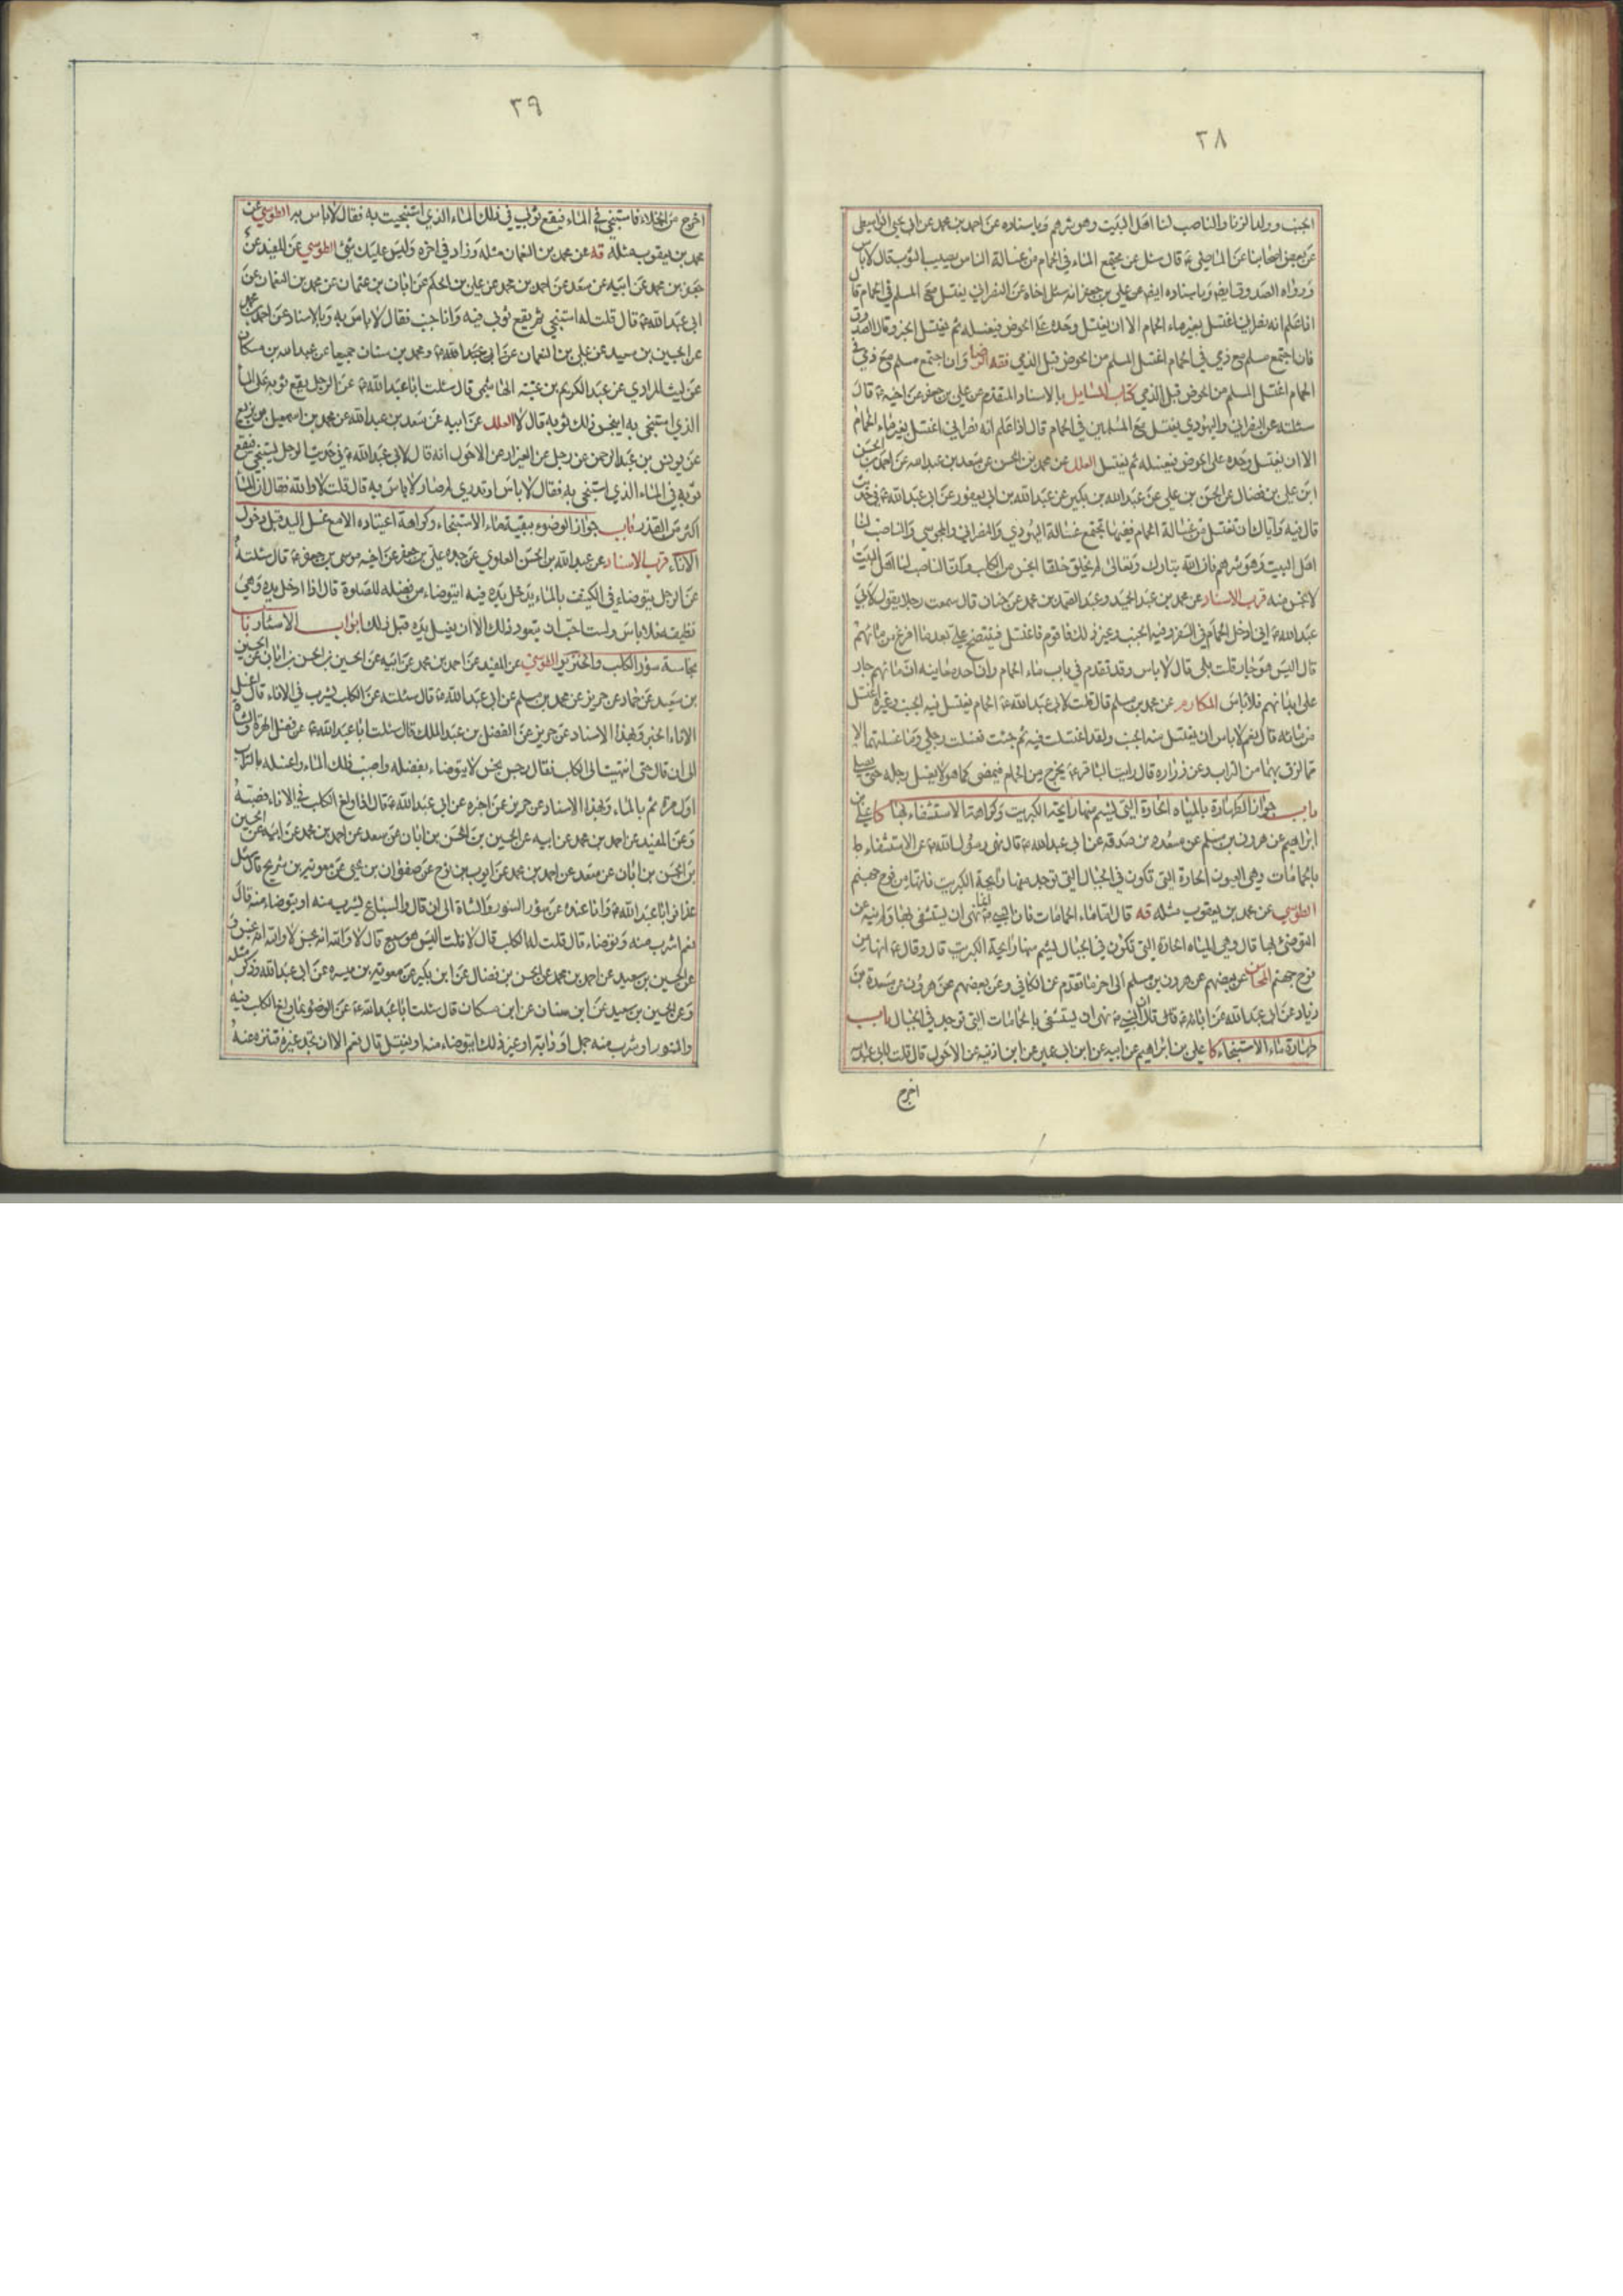 ٢٨
الجنب وولد الزنا والناصب لنا اهل البيت وهو شرهم وباسناده عن احمد بن محمد عن ابي يحيى الواسطي
عن بعض اصحابنا عن الماضي ع قال سئل عن مجتمع الماء في الحمام من غسالة الناس يصيب الثوب قال لاباس
ورواه الصدوق ايضا وباسناده ايضا عن علي بن جعفر انه سئل اخاه عن النصراني يغتسل مع المسلم في الحمام قال
اذا علم انه نصراني اغتسل بغير ماء الحمام الا ان يغتسل وحده على الحوض فيغسله ثم يغتسل الخبر وقال الصدوق
فان اجتمع مسلم مع ذمي في الحمام اغتسل المسلم من الحوض قبل الذمي فقه الرضا وان اجتمع مسلم مع ذمي في
الحمام اغتسل المسلم من الحوض قبل الذمي كتاب المسايل بالاسناد المتقدم عن علي بن جعفر عن اخيه ع قال
سئلته عن النصراني واليهودي يغتسل مع المسلمين في الحمام قال اذا علم انه نصراني اغتسل بغير ماء الحمام
الا ان يغتسل وحده على الحوض فيغسله ثم يغتسل العلل عن محمد بن الحسن عن سعد بن عبد الله عن احمد بن الحسن
ابن علي بن فضال عن الحسن بن علي عن عبد الله بن بكير عن عبد الله بن ابي يعفور عن ابي عبد الله ع في حديث
قال فيه واياك ان تغتسل من غسالة الحمام ففيها تجتمع غسالة اليهودي والنصراني والمجوسي والناصب لنا
اهل البيت وهو شرهم فان الله تبارك وتعالى لم يخلق خلقا انجس من الكلب وان الناصب لنا اهل البيت
لانجس منه قرب الاسناد عن محمد بن عبد الحميد وعبد الصمد بن محمد عن حنان قال سمعت رجلا يقول لابي
عبد الله ع اني ادخل الحمام في السحر وفيه الجنب وغير ذلك فاقوم فاغتسل فينتضح علي بعد ما افرغ من مائهم
قال اليس هو جار قلت بلى قال لاباس وقد تقدم في باب ماء الحمام وان احدهما فيه ان مائهم جار
على ابدانهم فلاباس المكارم عن محمد بن مسلم قال قلت لابي عبد الله ع الحمام يغتسل فيه الجنب وغيره اغتسل
من مائه قال نعم لاباس ان يغتسل منه الجنب ولقد اغتسلت فيه ثم جئت فغسلت رجلي وما غسلتهما الا
مما لزق بهما من التراب وعن زراره قال رايت الباقر ع يخرج من الحمام فيمضي كما هو لا يغسل رجله حتى يصلي
باب جواز الطهارة بالمياه الحارة التي يشم منها رايحة الكبريت وكراهة الاستشفاء بها كا علي بن
ابراهيم عن هرون بن مسلم عن مسعده بن صدقه عن ابي عبد الله ع قال نهى رسول الله ص عن الاستشفاء
بالحمات وهي العيون الحارة التي تكون في الجبال التي توجد منها رايحة الكبريت فانها من فوح جهنم
الطوسي عن محمد بن يعقوب مثله قه قال اما ماء الحمات فان النبي ص انما نهى ان يستشفى بها ولم ينه عن
التوضئ بها قال وهي المياه الحارة التي تكون في الجبال يشم منها رايحة الكبريت قال وقال ع انها من
فوح جهنم المحاسن عن بعضهم عن هرون بن مسلم الى اخر ما تقدم عن الكافي وعن بعضهم عن هرون عن مسعدة بن
زياد عن ابي عبد الله عن ابائه ع قال ان النبي ص نهى ان يستشفى بالحمات التي توجد في الجبال باب
طهارة ماء الاستنجاء كا علي بن ابراهيم عن ابيه عن ابن ابي عمير عن ابن اذينه عن الاحول قال قلت لابي عبد الله
اخرج
٢٩
اخرج من الخلاء فاستنجي في الماء فيقع ثوبي في ذلك الماء الذي استنجيت به فقال لاباس به الطوسي عن
محمد بن يعقوب مثله قه عن محمد بن النعمان مثله وزاد في اخره وليس عليك شئ الطوسي عن المفيد عن
جعفر بن محمد عن ابيه عن سعد عن احمد بن محمد عن علي بن الحكم عن ابان بن عثمان عن محمد بن النعمان عن
ابي عبد الله ع قال قلت له استنجي ثم يقع ثوبي فيه وانا جنب فقال لاباس به وبالاسناد عن احمد بن محمد
عن الحسين بن سعيد عن علي بن النعمان عن ابي عبد الله ع ومحمد بن سنان جميعا عن عبد الله بن مسكان
عن ليث المرادي عن عبد الكريم بن عتبة الهاشمي قال سئلت ابا عبد الله ع عن الرجل يقع ثوبه على الماء
الذي استنجى به اينجس ذلك ثوبه قال لا العلل عن ابيه عن سعد بن عبد الله عن محمد بن اسمعيل بن بزيع
عن يونس بن عبد الرحمن عن رجل عن العيزار عن الاحول انه قال لابي عبد الله ع في حديث الرجل يستنجي فيقع
ثوبه في الماء الذي استنجى به فقال لاباس او تدري لم صار لاباس به قال قلت لا والله فقال ان الماء
اكثر من القذر باب جواز الوضوء ببقية ماء الاستنجاء وكراهة اعتياده الا مع غسل اليد قبل دخول
الاناء قرب الاسناد عن عبد الله بن الحسن العلوي عن جده علي بن جعفر عن اخيه موسى بن جعفر ع قال سئلته
عن الرجل يتوضاء في الكنيف بالماء يدخل يده فيه ايتوضاء من فضله للصلوة قال اذا ادخل يده وهي
نظيفة فلاباس ولست احب ان يتعود ذلك الا ان يغسل يده قبل ذلك ابواب الاسئار باب
نجاسة سؤر الكلب والخنزير الطوسي عن المفيد عن احمد بن محمد عن ابيه عن الحسين بن الحسن بن ابان عن الحسين
بن سعيد عن حماد عن حريز عن محمد بن مسلم عن ابي عبد الله ع قال سئلته عن الكلب يشرب في الاناء قال اغسل
الاناء الخبر وبهذا الاسناد عن حريز عن الفضل بن عبد الملك قال سئلت ابا عبد الله ع عن فضل الهرة والشاة
الى ان قال حتى انتهيت الى الكلب فقال رجس نجس لا يتوضاء بفضله واصبب ذلك الماء واغسله بالتراب
اول مرة ثم بالماء وبهذا الاسناد عن حريز عمن اخبره عن ابي عبد الله ع قال اذا ولغ الكلب في الاناء فصبه
وعن المفيد عن احمد بن محمد عن ابيه عن الحسين بن الحسن بن ابان عن سعد عن احمد بن محمد عن ابيه عن الحسين
بن الحسن بن ابان عن سعد عن احمد بن محمد عن ايوب بن نوح عن صفوان بن يحيى عن معويه بن شريح قال سئل
عذافر ابا عبد الله ع وانا عنده عن سؤر السنور والشاة الى ان قال والسباع يشرب منه او يتوضاء منه قال
نعم اشرب منه وتوضاء قال قلت له الكلب قال لا قلت اليس هو سبع قال لا والله انه نجس لا والله انه نجس و
عن الحسين بن سعيد عن احمد بن محمد عن الحسن بن فضال عن ابن بكير عن معويه بن ميسره عن ابي عبد الله وذكر مثله
وعن الحسين بن سعيد عن ابن سنان عن ابن مسكان قال سئلت ابا عبد الله ع عن الوضوء مما ولغ الكلب فيه
والسنور او شرب منه جمل او دابة او غير ذلك ايتوضاء منه او يغتسل قال نعم الا ان تجد غيره فتنزه عنه